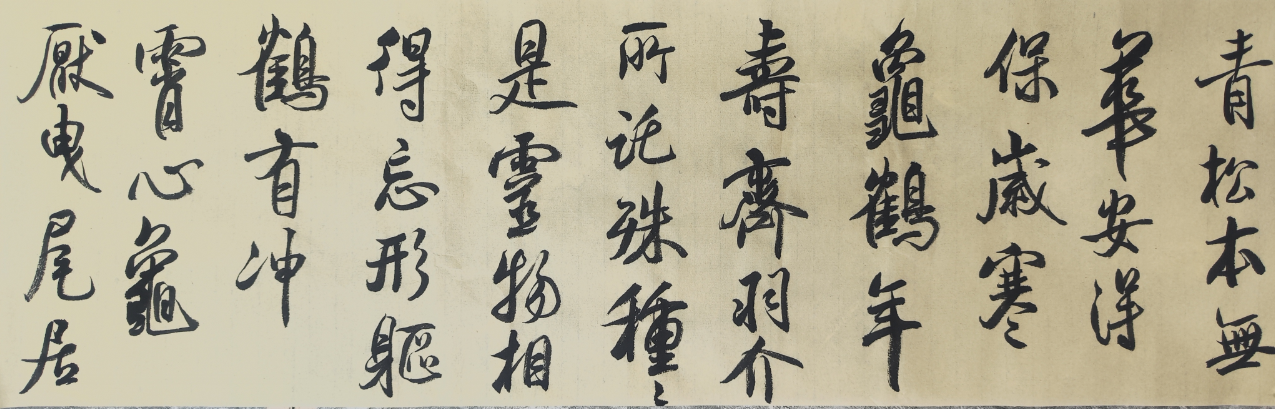 青松本無
華安得
保歲寒
龜鶴年
壽齊羽介
所託殊種〻
是靈物相
得忘形軀
鶴有冲
霄心龜
厭曳尾居